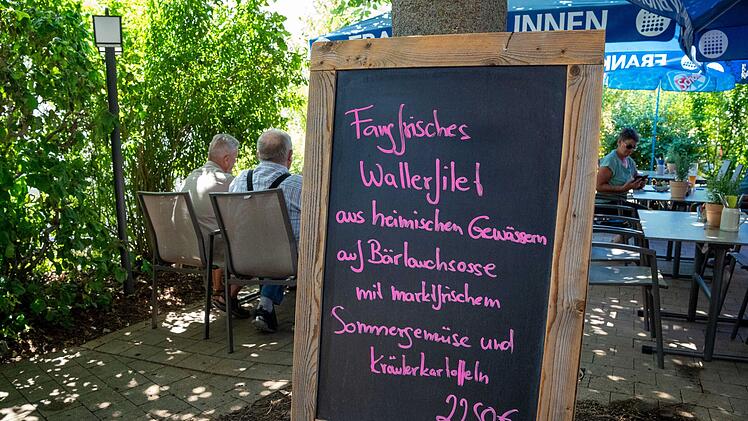 INNEN
FRAN
FRANK
Fangfrisches
Wallerfilet
aus heimischen Gewässern
auf Bärlauchsosse
mit marktfrischem
Sommergemüse und
Kräuterkartoffeln
22,50€